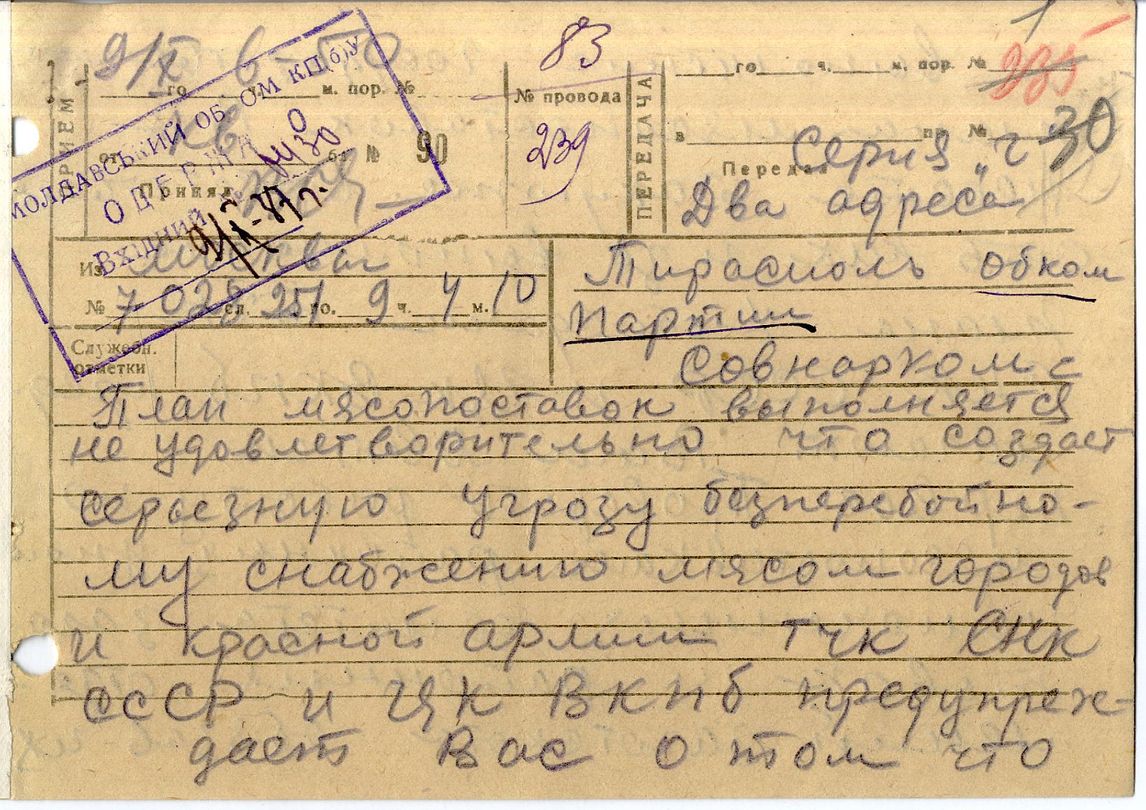 1
9/X 6-50
83
235
го м. пор. №
№ провода
го ч. м. пор. №
ПРИЕМ
МОЛДАВСЬКИЙ ОБ ОМ КП(б)У
ОДЕРЖА
Вхідний
от № 90
239
ПЕРЕДАЧА
в пр. №
30
Принял
Передал
Серия "Г"
Два адреса
Из Москвы
№ 7028 сл. 251 го. 9 ч. 4 м. 10
Тирасполь обком
партии
Служебн.
отметки
Совнарком с
План мясопоставок выполняется
не удовлетворительно что создает
серьезную угрозу безперебойно-
му снабжению мясом городов
и красной армии тчк СНК
СССР и ЦК ВКПб предупреж-
дает Вас о том что